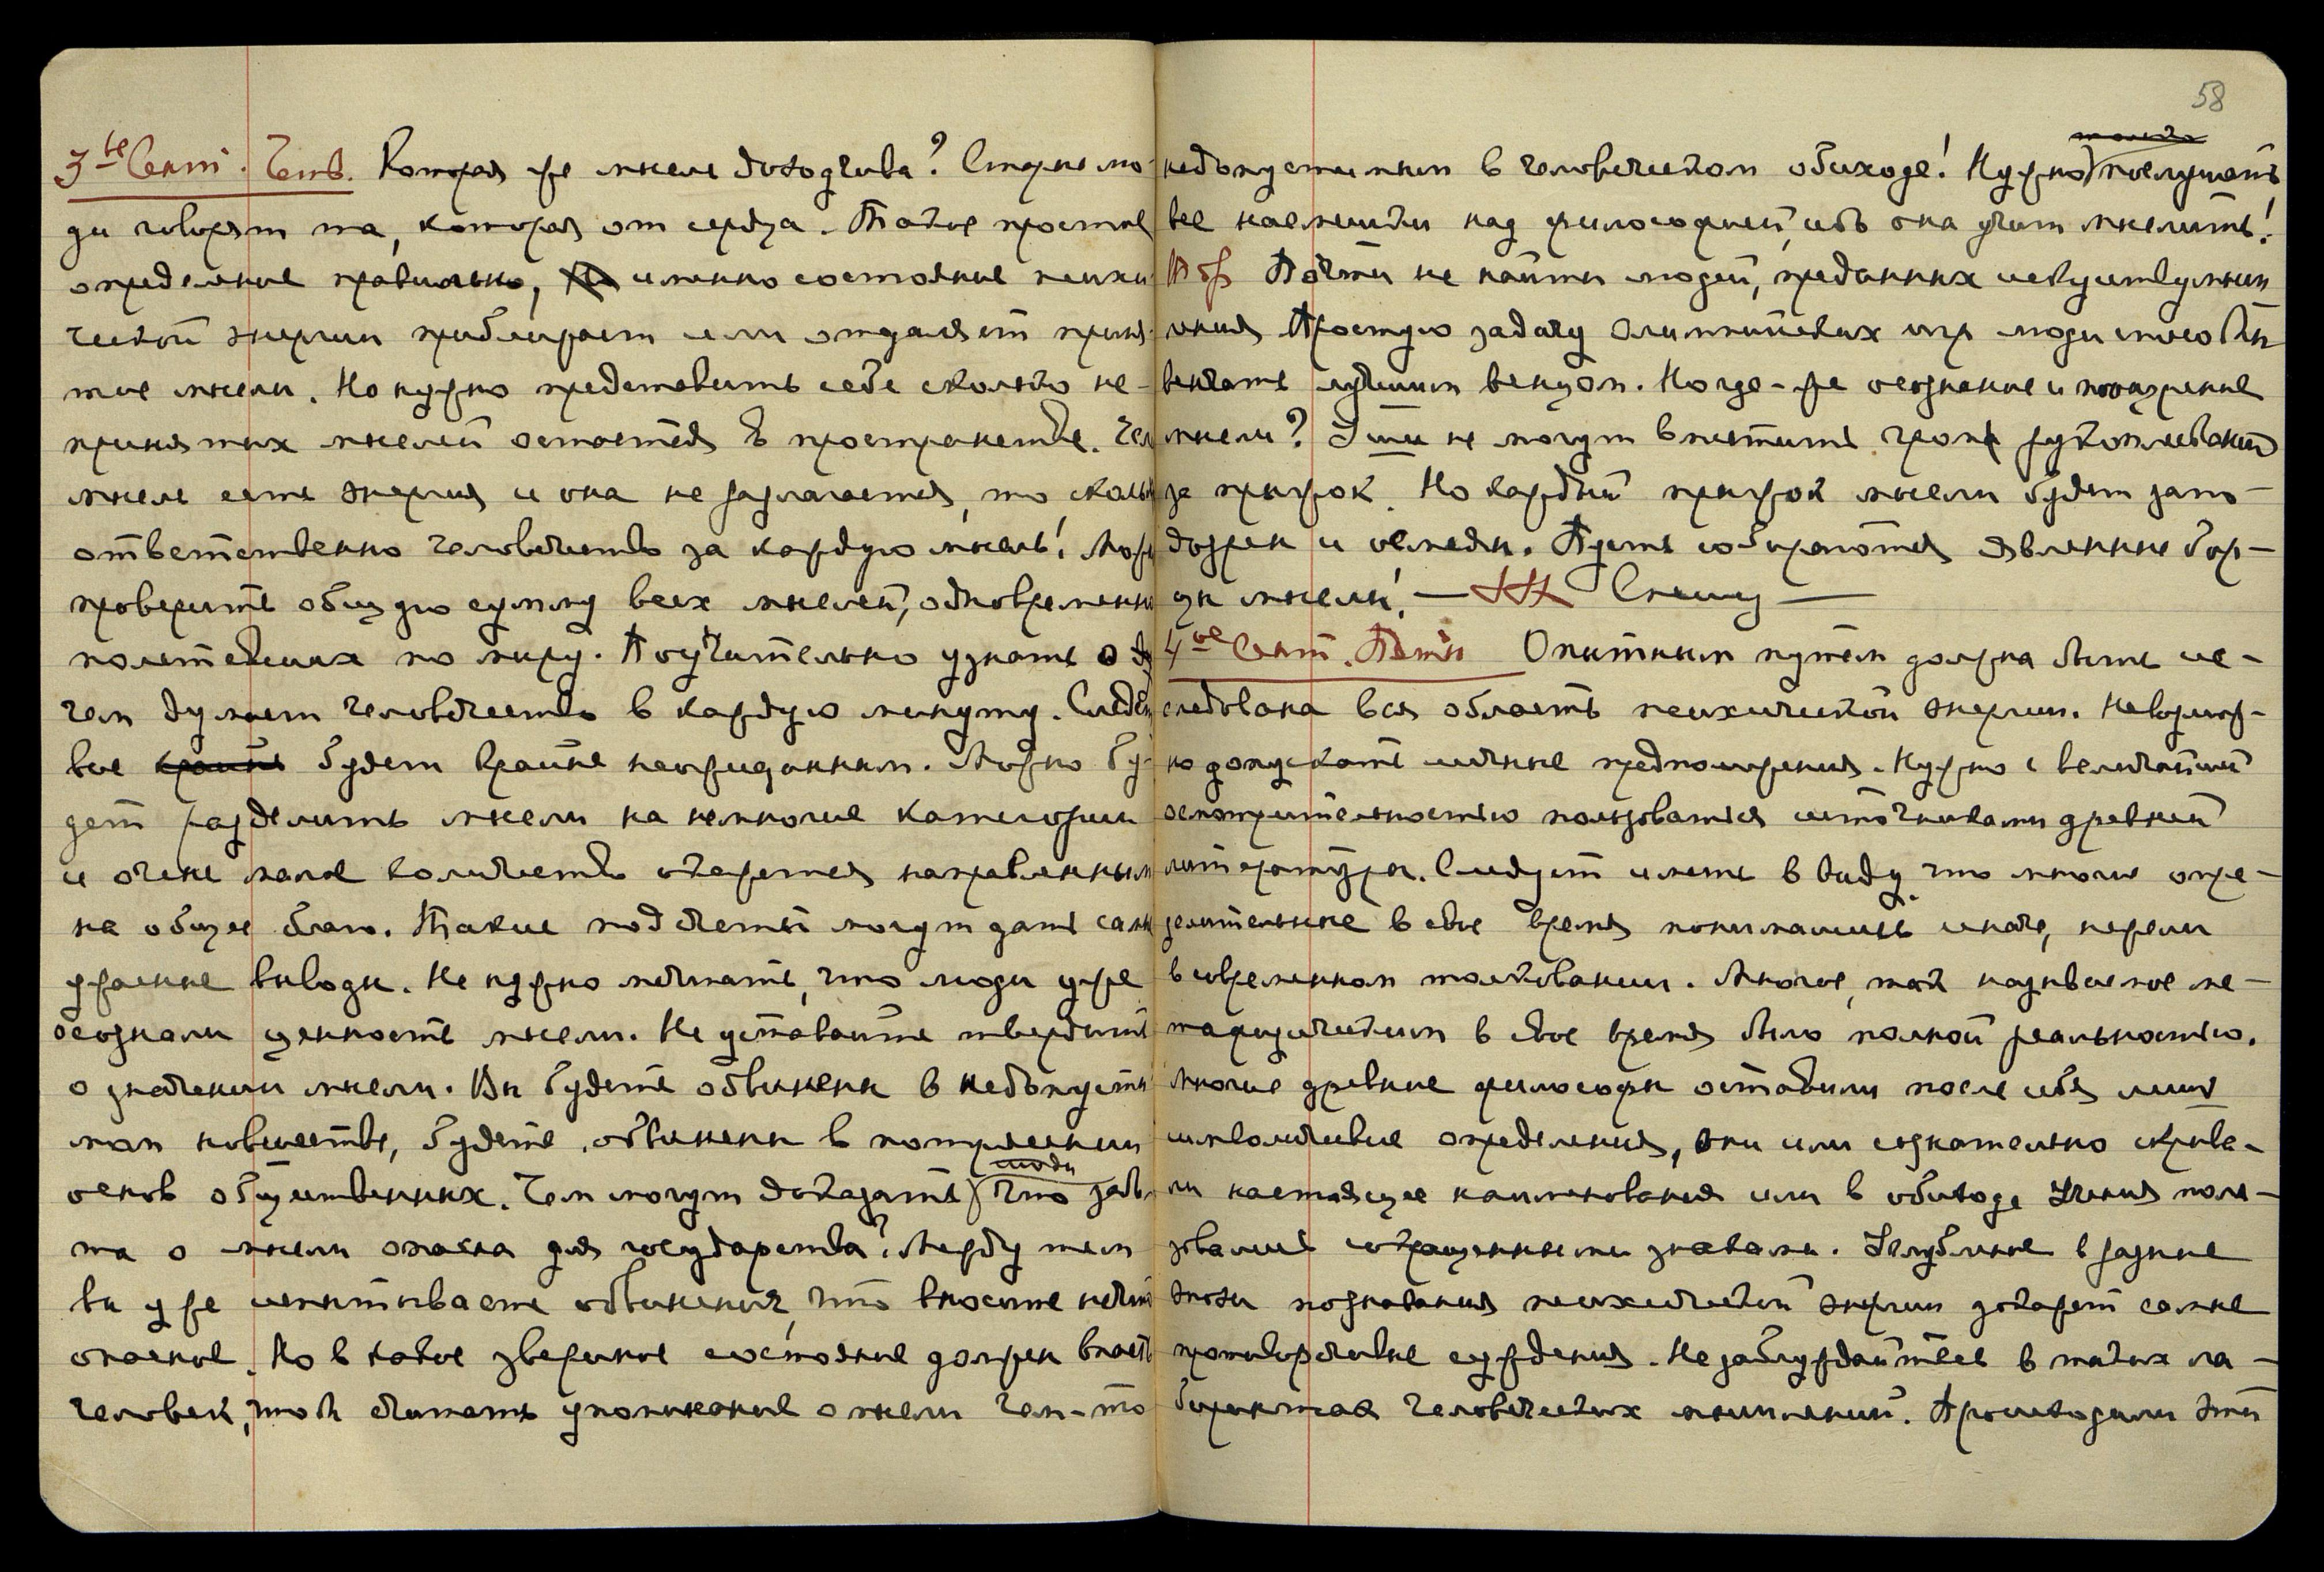 3ье Сент. Четв. Которая же мысль доходчива? Старые лю-
ди говорят та, которая от сердца. Такое простое
определение правильно, именно состояние психи-
ческой энергии приближает или отдаляет приня-
тие мысли. Но нужно представить себе сколько не-
принятых мыслей остается в пространстве.
мысль есть энергия и она не разлагается, то сколь
ответственно человечество за каждую мысль!
проверить общую сумму всех мыслей, одновременно
полетевших по миру. Поучительно узнать о
чем думает человечество в каждую минуту.
вие крайне будет крайне неожиданным. Можно бу-
дет разделить мысли на немногие категории
и очень малое количество окажется направленным
на общее благо. Такие подсчеты могут дать самые
ужасные выводы. Не нужно мечтать, что люди уже
осознали ценность мысли. Не уставайте твердить
о значении мысли. Вы будете обвинены в недопусти-
мом новшестве, будете обвинены в потрясении
основ общественных. Чем могут доказать, что
та о мысли опасна для государства? Между тем
вы уже испытываете обвинения, что вносите нечто
опасное. Но в какое звериное состояние должен впасть
человек, чтоб считать упоминание о мысли чем-то
58
только
недопустимым в человеческом обиходе! Нужно послушать
все насмешки над философией, ибо она учит мыслить!
Почти не найти людей, преданных искусству мыш-
ления. Простую задачу Олимпийских игр люди способны
венчать лучшим венцом. Но где-же осознание и поощрение
мысли? Уши не могут вместить гром рукоплесканий
за прыжок. Но каждый прыжок мысли будет запо-
дозрен и осмеян. Пусть собираются явленные бор-
цы мысли! — Спешу —
4ое Сент. Пятн. Опытным путем должна быть ис-
следована вся область психической энергии. Невозмож-
но допускать личные предположения. Нужно с величайшей
осмотрительностью пользоваться источниками древней
литературы. Следует иметь в виду, что многие опре-
делительные в свое время понимались иначе, нежели
в современном толковании. Многое, так называемое ме-
тафизическим в свое время было полной реальностью.
Многие древние философы оставили после себя лишь
символические определения, они или сознательно скрыва-
ли настоящее наименования или в обиходе Учения поль-
зовались сокращенными знаками. Углубление в разные
эпохи познавания психической энергии докажет самые
противоречивые суждения. Не заблуждайтесь в таких ла-
биринтах человеческих мышлений. Происходили эти